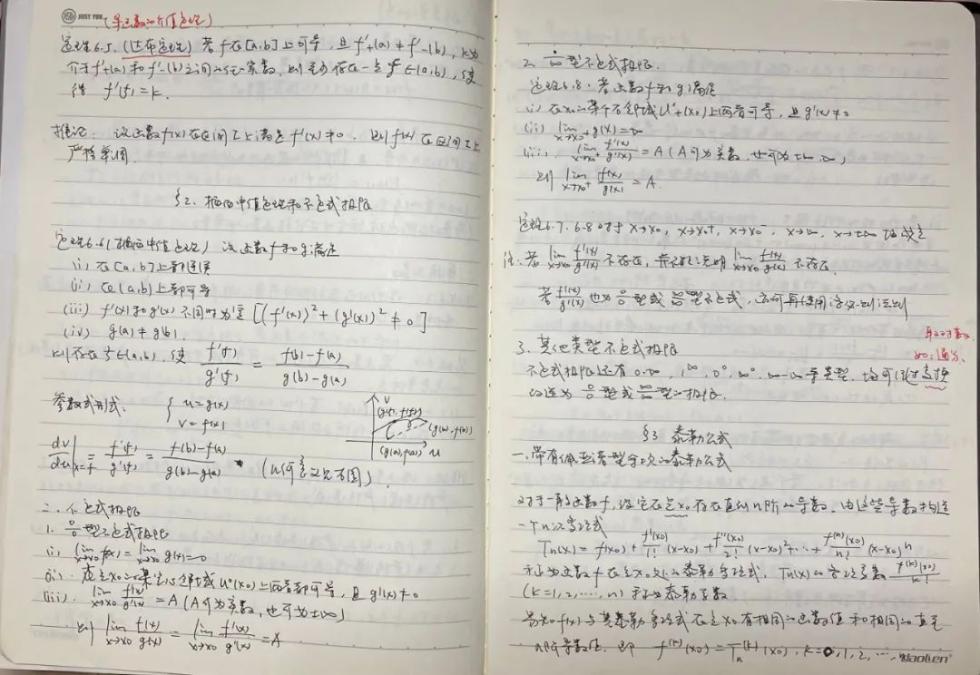 JUST YOU (导函数的介值定理)
定理6.5.(达布定理) 若f在[a,b]上可导,且f'₊(a)≠f'₋(b),k为
介于f'₊(a)和f'₋(b)之间的任一实数,则至少存在一点ξ∈(a,b),使
得 f'(ξ)=k.
推论: 设函数f(x)在区间I上满足f'(x)≠0. 则f(x)在区间I上
严格单调.
§2. 柯西中值定理和不定式极限
定理6.6(柯西中值定理) 设函数f和g满足
(i) 在[a,b]上都连续
(ii) 在(a,b)上都可导
(iii) f'(x)和g'(x)不同时为零 [(f'(x))²+(g'(x))²≠0]
(iv) g(a)≠g(b).
则存在ξ∈(a,b),使 f'(ξ)/g'(ξ) = (f(b)-f(a))/(g(b)-g(a))
参数式形式: { u=g(x) v=f(x)
v (g(ξ),f(ξ)) (g(b),f(b)) (g(a),f(a)) u
dv/du|x=ξ = f'(ξ)/g'(ξ) = (f(b)-f(a))/(g(b)-g(a)) (几何意义见右图)
二. 不定式极限
1. 0/0型不定式极限
(i) lim x→x₀ f(x)=lim x→x₀ g(x)=0
(ii) 在点x₀的某空心邻域U°(x₀)上两者都可导,且g'(x)≠0
(iii) lim x→x₀ f'(x)/g'(x) = A (A可为实数,也可为±∞)
则 lim x→x₀ f(x)/g(x) = lim x→x₀ f'(x)/g'(x) = A
2. 型不定式极限.
定理6.8. 若函数f和g满足
(i) 在x₀的某个右邻域U°₊(x₀)上两者可导,且g'(x)≠0
(ii) lim x→x₀⁺ g(x)=∞
(iii) lim x→x₀⁺ f'(x)/g'(x) = A (A可为实数,也可为±∞,∞)
则 lim x→x₀⁺ f(x)/g(x) = A.
定理6.7. 6.8对于x→x₀, x→x₀⁺, x→x₀⁻, x→∞, x→±∞ 均成立
注: 若 lim x→x₀ f'(x)/g'(x) 不存在,并不能说明 lim x→x₀ f(x)/g(x) 不存在.
若 f'(x)/g'(x) 也为0/0型或∞/∞型不定式,亦可再使用洛必达法则
取对数
如:通分.
3. 其他类型不定式极限
不定式极限还有 0·∞, 1^∞, 0⁰, ∞⁰, ∞-∞ 等类型. 均可经过变换
化为 0/0型或∞/∞型的极限.
§3 泰勒公式
一. 带有佩亚诺型余项的泰勒公式
对于一般函数f,设它在点x₀存在直到n阶的导数. 由这些导数构造
一个n次多项式
Tn(x)= f(x₀) + f'(x₀)/1! (x-x₀) + f''(x₀)/2! (x-x₀)²+…+ f⁽ⁿ⁾(x₀)/n! (x-x₀)ⁿ
称为函数f在点x₀处的泰勒多项式, Tn(x)的各项系数 f⁽ᵏ⁾(x₀)/k!
(k=1,2,…,n) 称为泰勒系数
易知f(x)与其泰勒多项式在点x₀有相同的函数值和相同的直至
n阶导数值, 即 f⁽ᵏ⁾(x₀)=Tn⁽ᵏ⁾(x₀), k=0,1,2,…,